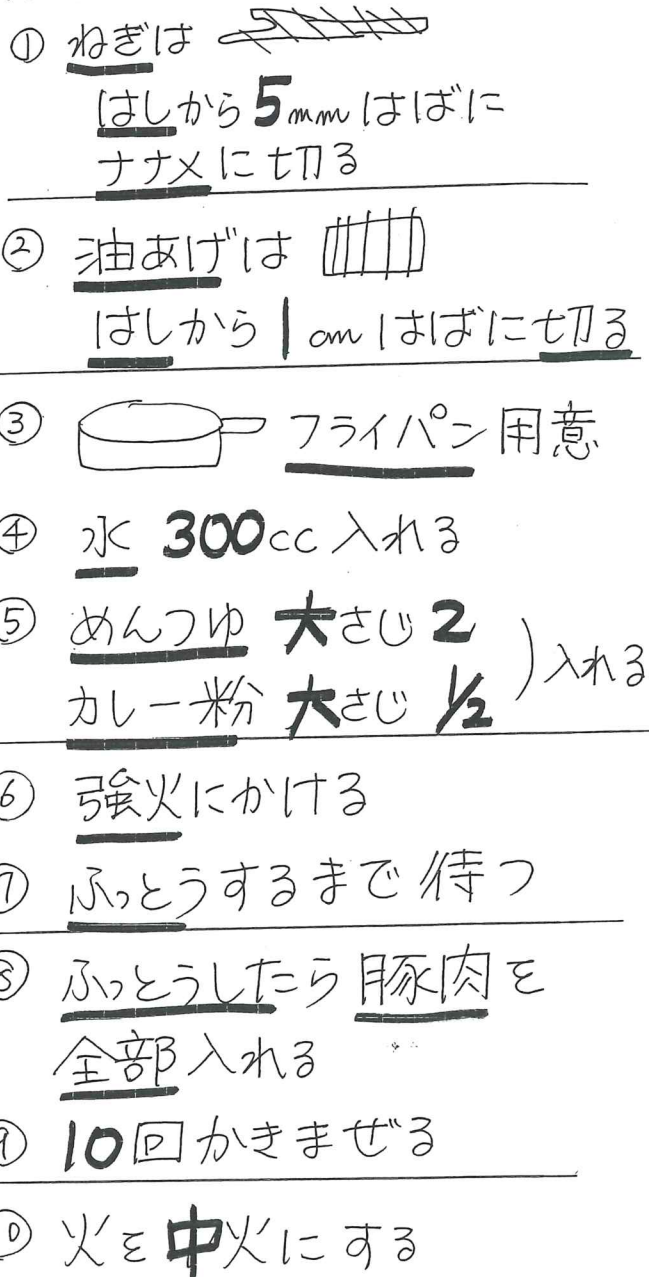 ① ねぎは
はしから5mmはばに
ナナメに切る
② 油あげは
はしから1cmはばに切る
③ フライパン用意
④ 水 300cc入れる
⑤ めんつゆ 大さじ2
カレー粉 大さじ1/2 )入れる
⑥ 強火にかける
⑦ ふっとうするまで待つ
⑧ ふっとうしたら豚肉を
全部入れる
⑨ 10回かきまぜる
⑩ 火を中火にする